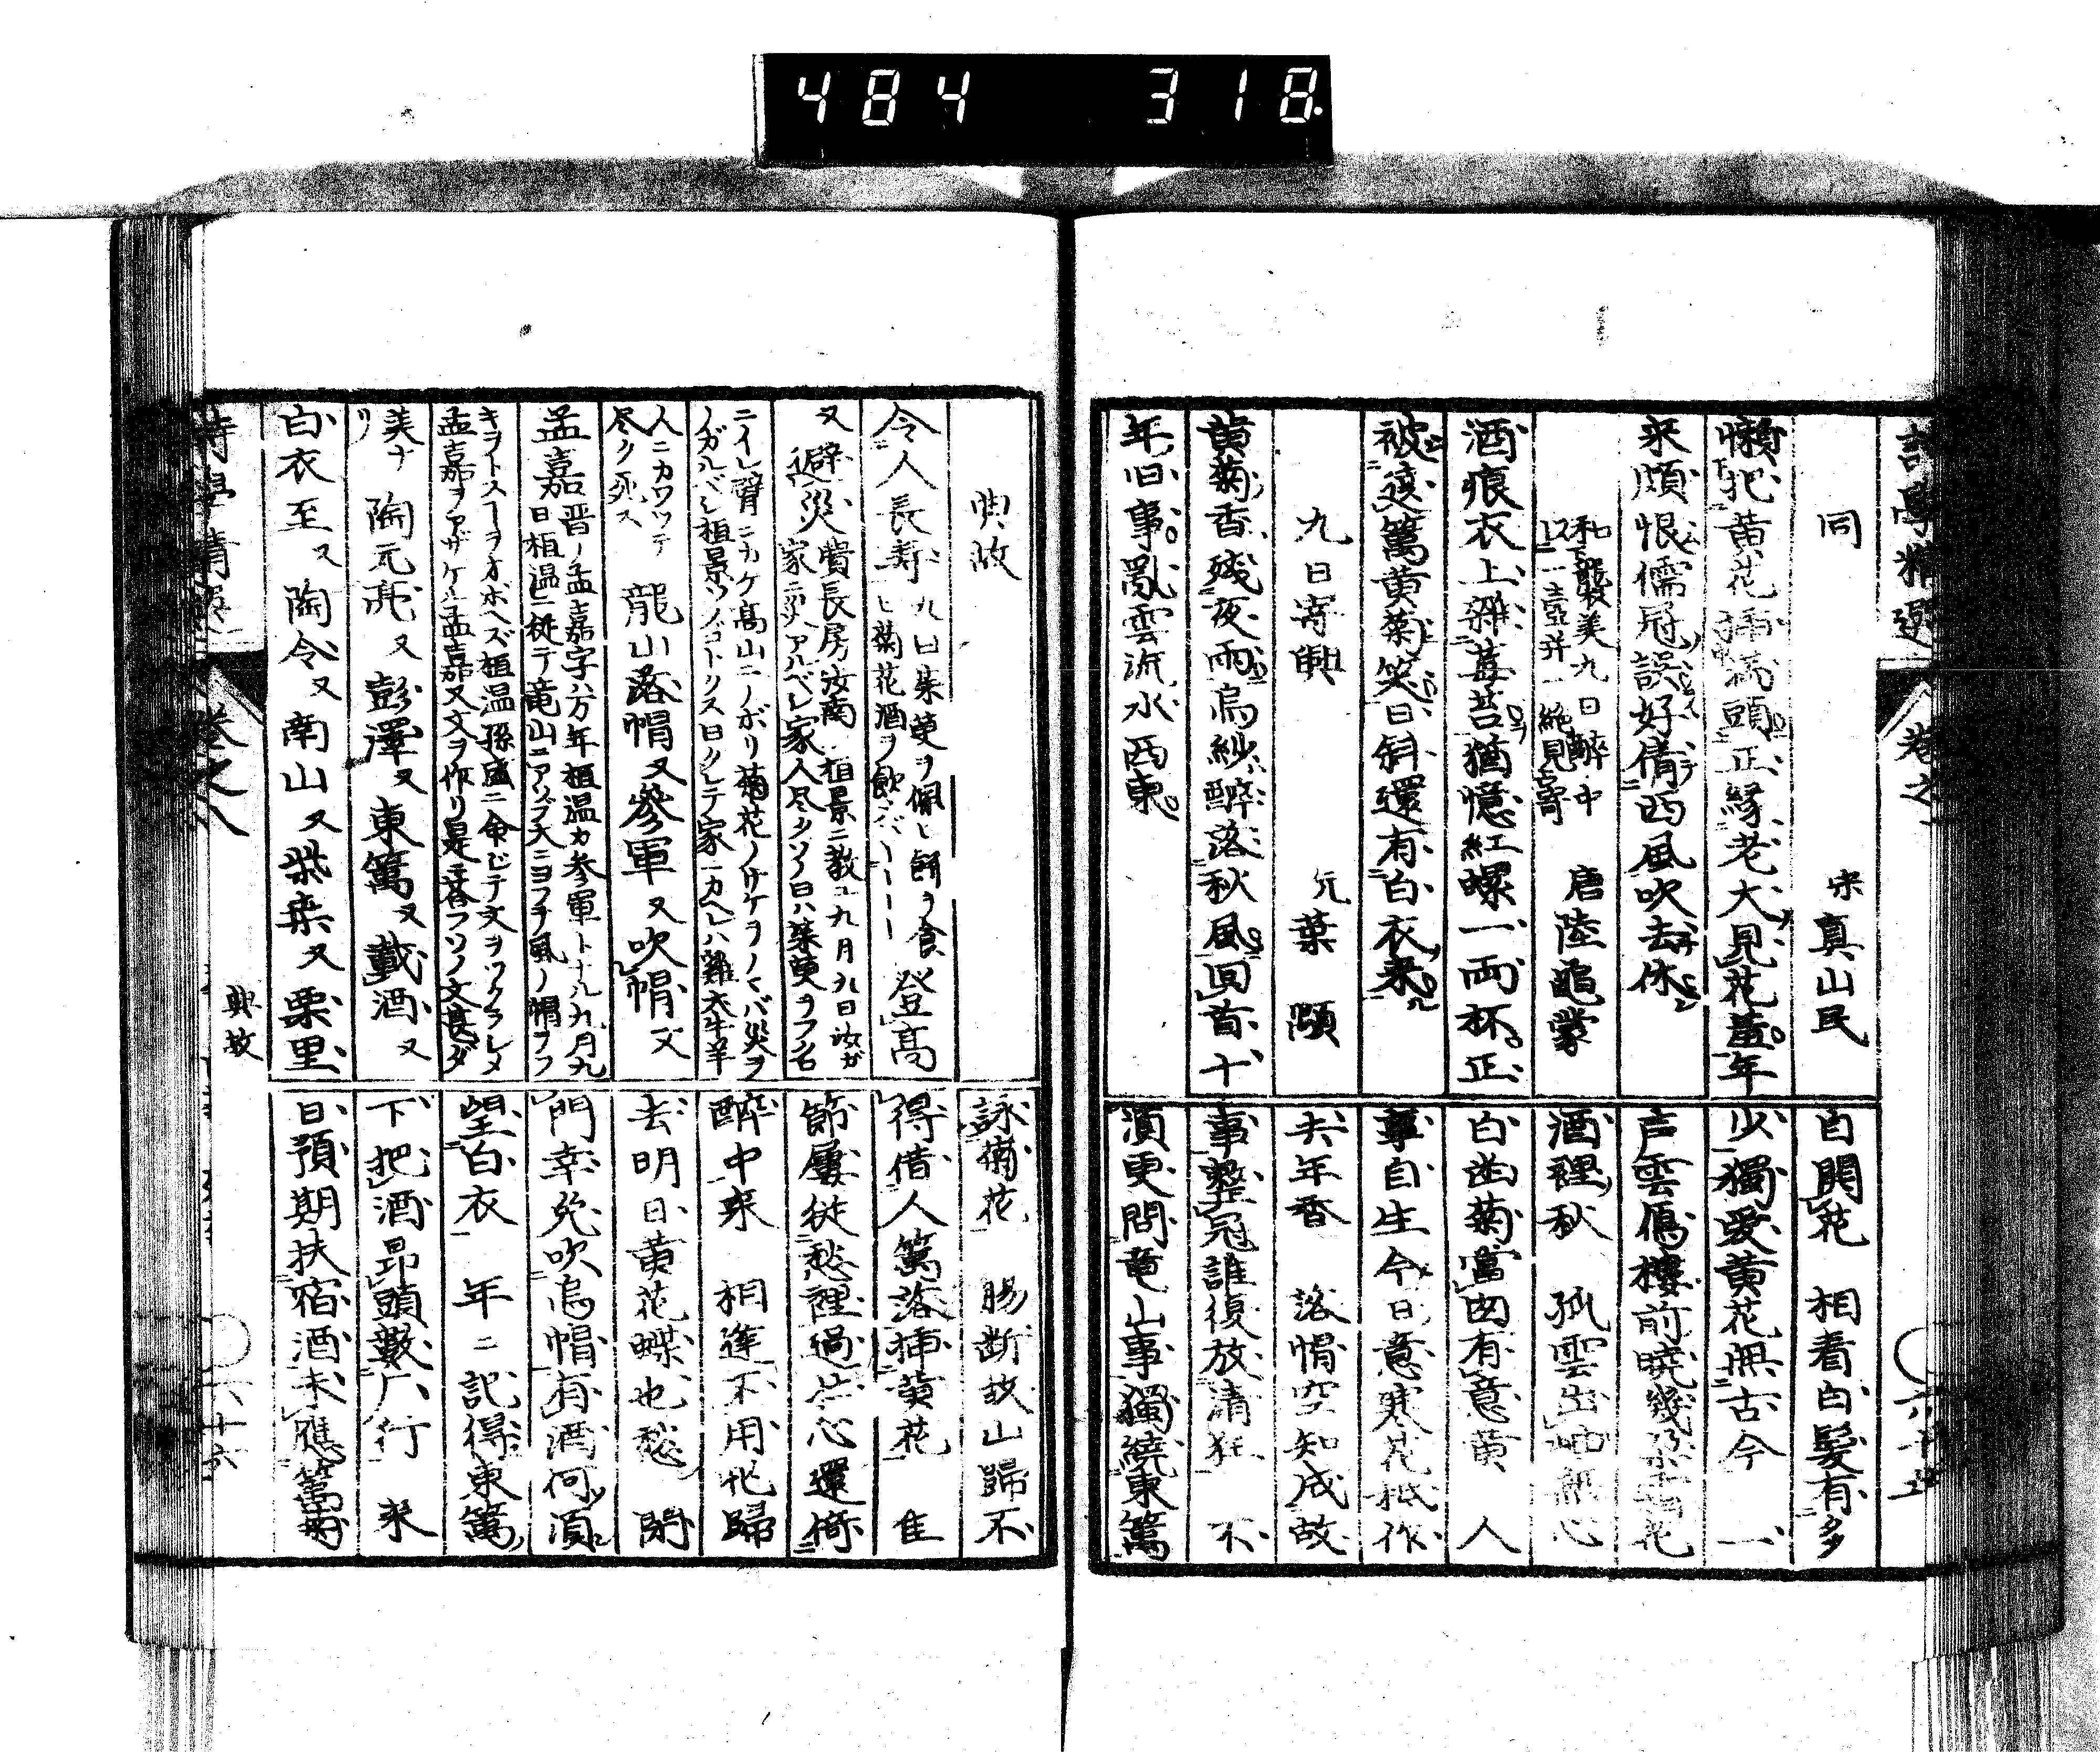 484 318
同 宋 真山民
懶把黄花挿満頭正縁老大見花羞年
来頗恨儒冠誤好倩西風吹去休
和襲美九日醉中
以一壺并一絶見寄 唐 陸龜蒙
酒痕衣上雑莓苔猶憶紅螺一両杯正
被遶篱黄菊笑日斜還有白衣来
九日寄興 元 葉顒
黄菊香残夜雨烏紗醉落秋風回首十
年旧事乱雲流水西東
白開花 相看白髪有多
少獨愛黄花無古今 一
声雲鴈樓前暁幾朶霜花
酒裡秋 孤雲出岫無心
白幽菊當囱有意黄 人
事自生今日意寒花抵作
去年香 落帽空知成故
事整冠誰復放清狂 不
須更問竜山事獨繞東篱
典故
令人長寿 九日茱萸ヲ佩ヒ餌ヲ食
ヒ菊花酒ヲ飲 登高
又避災 費長房汝南ノ桓景ニ教ユ九月九日汝ガ
家ニ災アルベシ家人尽ク
ニイレ臂ニカケ高山ニノボリ菊花ノサケヲノメバ災ヲ
ノガルベシ桓景ソノゴトクス日クレテ家ニカヘレバ雞犬牛羊
人ニカワツテ
尽ク死ス 龍山落帽又参軍又吹帽又
孟嘉 晋ノ孟嘉字ハ万年桓温カ参軍トナル九月九
日桓温ニ従テ竜山ニアソブ
キヲトスヲオボヘズ桓温孫盛ニ命ジテ文ヲツクラシメ
孟嘉ヲアザケル孟嘉又文ヲ作リ是ニ答フソノ文甚ダ
美ナリ 陶元亮又彭澤又東篱又載酒又
白衣至又陶令又南山又柴桑又栗里
詠菊花 腸断故山歸不
得借人篱落挿黄花 佳
節屢従愁裡過 心還倚
醉中来 相逢不用忙歸
去明日黄花蝶也愁 閉
門幸免吹烏帽有酒何須
望白衣 年ニ記得東篱
下把酒昂頭數厂行 来
日預期扶宿酒未應篱菊
詩學精選 巻之八 典故 六十六